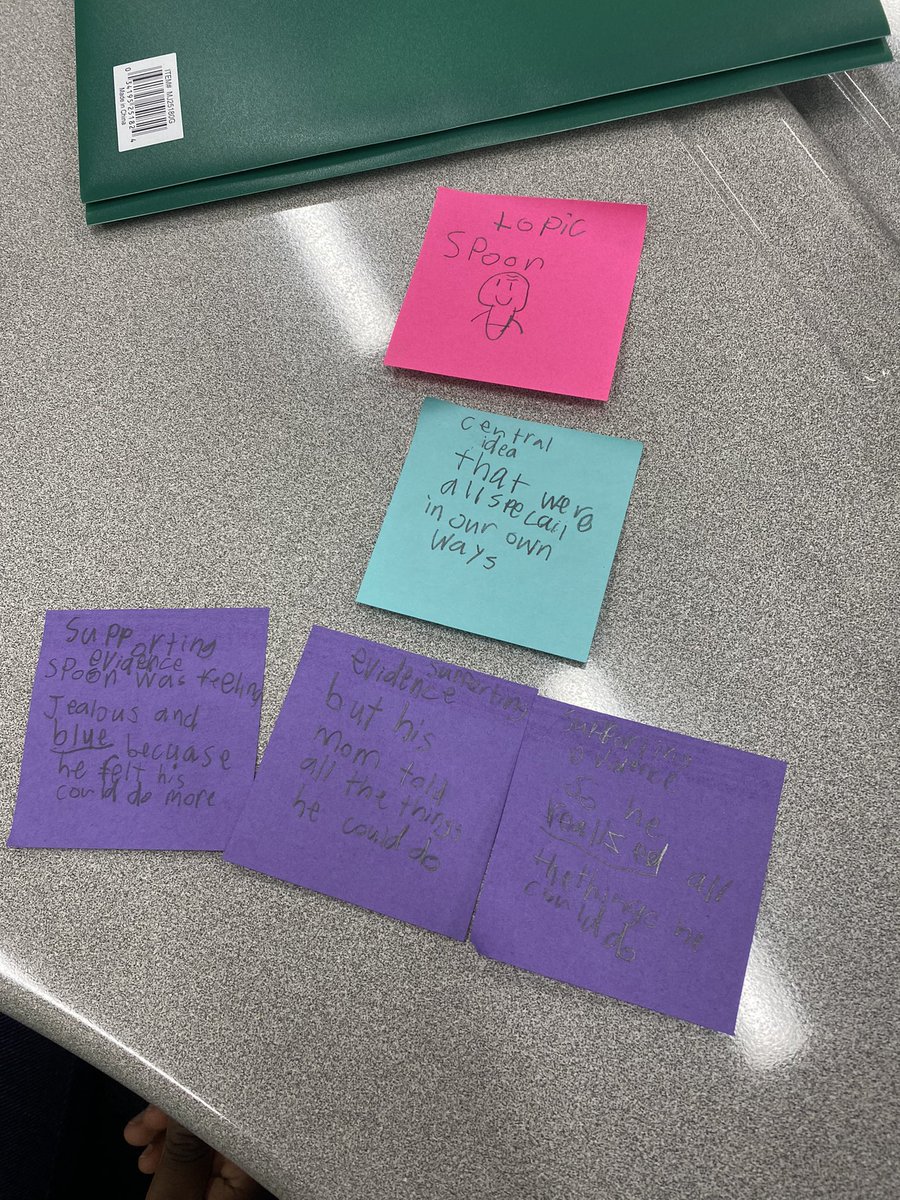 ITEM# MJ25180G
Made in China
topic
Spoon
central
idea
that were
all specail
in our own
ways
Supporting
evidence
Spoon was feeling
Jealous and
blue becuase
he felt his
could do more
supporting
evidence
but his
mom told
all the things
he could do
Supporting
evidence
So he
realised all
the things he
could do